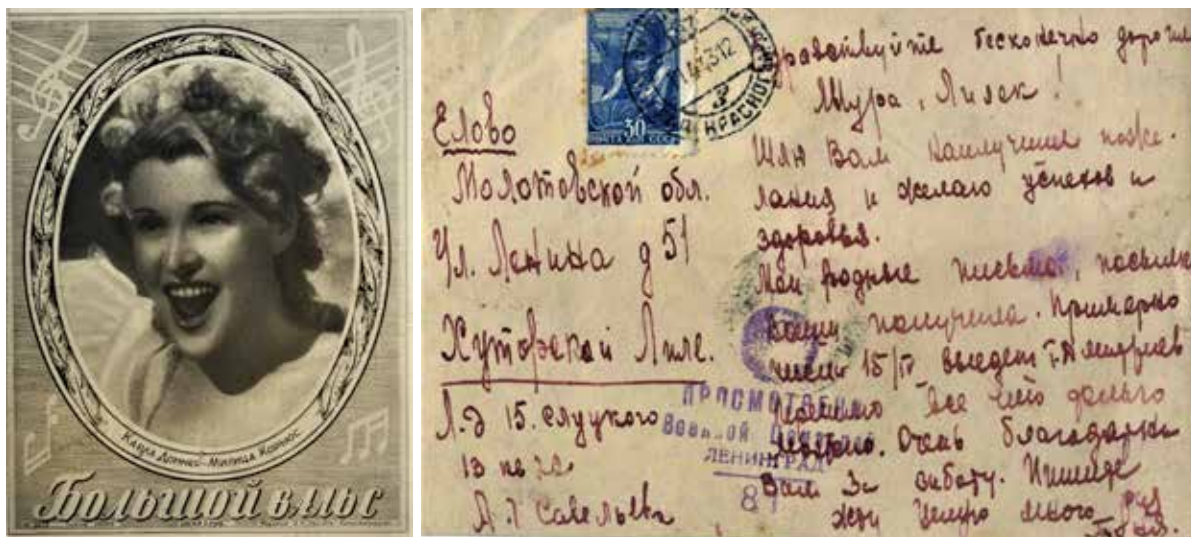 Карла Доннер–Милица Корнюс
Большой вальс
Елово
Молотовской обл.
Ул. Ленина д 51
Хуторской Лиле.
Л.д 15. Слуцкого
13 кв 20
Савельева
30
ПОЧТА СССР
3
КРАСНО
ПРОСМОТРЕНО
Военной Цензурой
ЛЕНИНГРАД
81
дравствуйте бесконечно дорогие
Шура, Лилек!
Шлю Вам наилучшие поже-
лания и желаю успехов и
здоровья.
Мои родные письма, посылку
Вашу получила. Примерно
числа 15/IV выедет
все
Очень благодарна
Вам за заботу. Пишите
жду Целую много раз